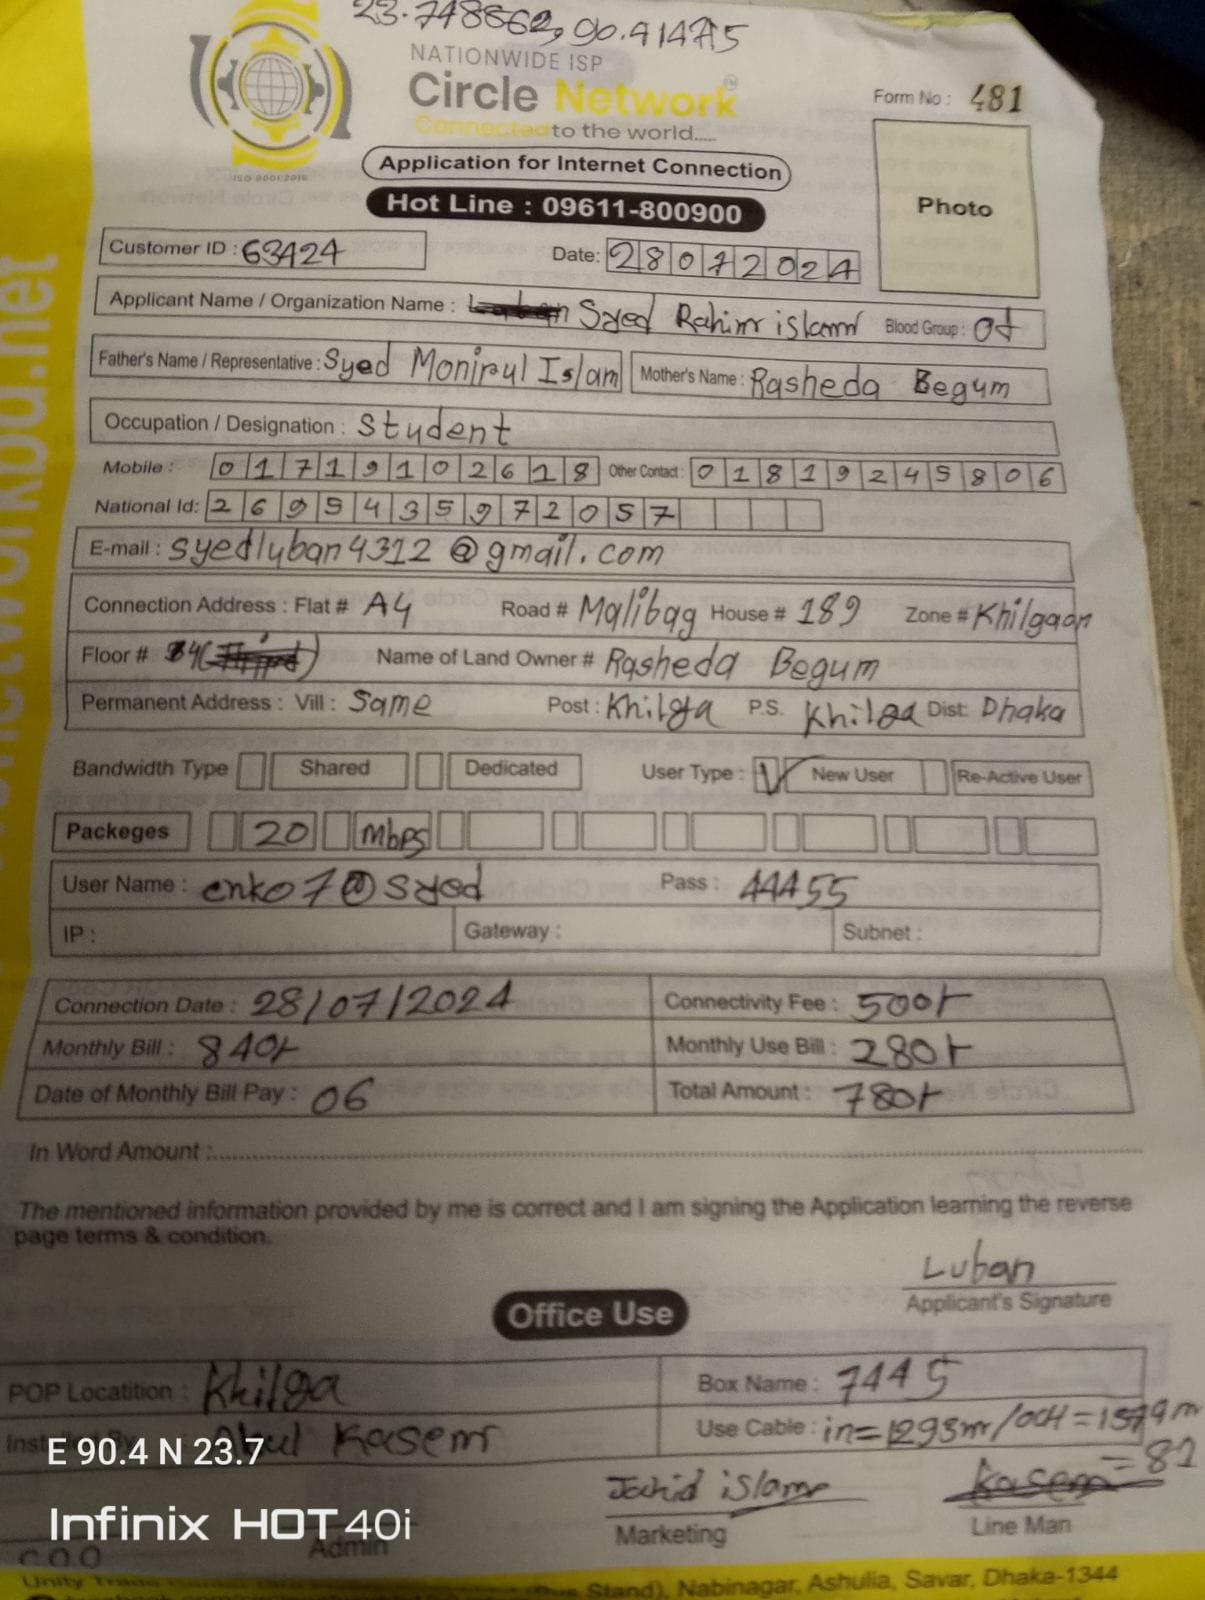 23.748662, 90.414715
NATIONWIDE ISP
Circle Network
Connected to the world.....
ISO 9001:2015
Form No : 481
Application for Internet Connection
Photo
Hot Line : 09611-800900
Customer ID : 63424 Date: 28072024
Applicant Name / Organization Name : Syed Rahim islam Blood Group : O+
Father's Name / Representative : Syed Monirul Islam Mother's Name : Rasheda Begum
Occupation / Designation : Student
Mobile : 01719102618 Other Contact : 01819245806
National Id: 2695435972057
E-mail : syedluban4312@gmail.com
Connection Address : Flat # A4 Road # Malibag House # 189 Zone # Khilgaon
Floor # Name of Land Owner # Rasheda Begum
Permanent Address : Vill : Same Post : Khilga P.S. Khilga Dist: Dhaka
Bandwidth Type Shared Dedicated User Type : New User Re-Active User
Packeges 20 Mbps
User Name : enko7@syed Pass : 44455
IP : Gateway : Subnet :
Connection Date : 28/07/2024 Connectivity Fee : 500/-
Monthly Bill : 840/- Monthly Use Bill : 280/-
Date of Monthly Bill Pay : 06 Total Amount : 780/-
In Word Amount :
The mentioned information provided by me is correct and I am signing the Application learning the reverse
page terms & condition.
Luban
Applicant's Signature
Office Use
POP Locatition : Khilga Box Name : 7445
Abul Kasem Use Cable : in=1293m/
Jahid islam Kasem = 82
Marketing Line Man
Admin
C.O.O
Stand), Nabinagar, Ashulia, Savar, Dhaka-1344
E 90.4 N 23.7
Infinix HOT 40i